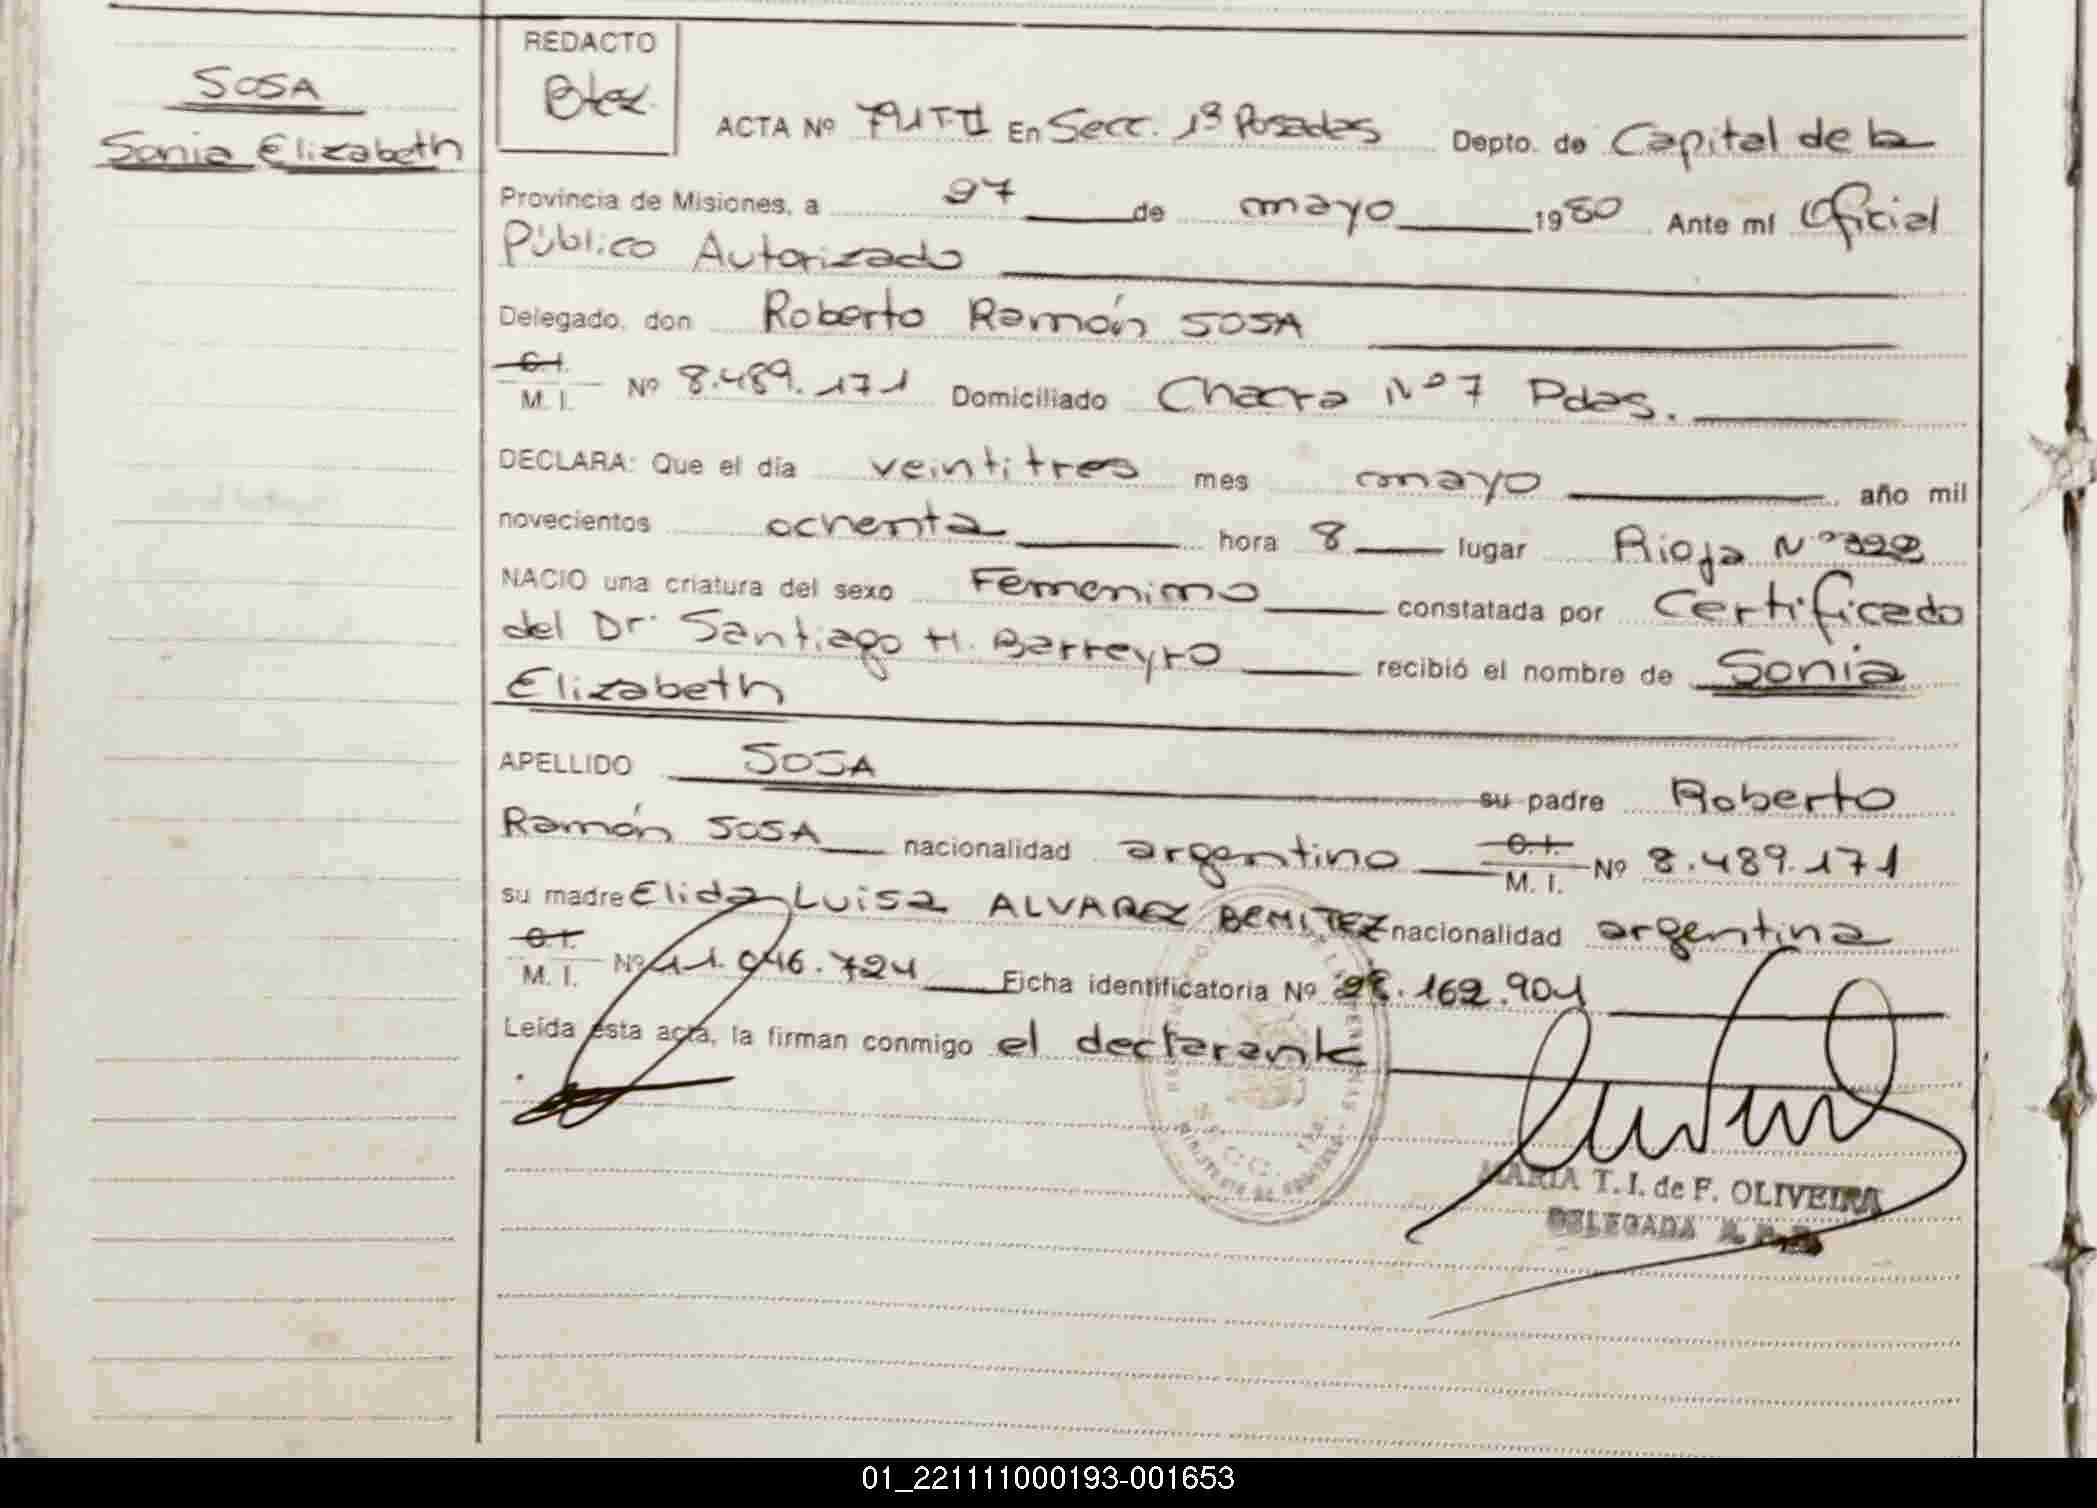 SOSA
Sonia Elizabeth
REDACTO
ACTA Nº 791 T-II En Secc. 1ª Posadas Depto. de Capital de la
Provincia de Misiones, a 27 de mayo 1980 Ante mí Oficial
Público Autorizado
Delegado, don Roberto Ramón SOSA
C.I.
M. I. Nº 8.489.171 Domiciliado Chacra Nº 7 Pdas.
DECLARA: Que el día veintitres mes mayo año mil
novecientos ochenta hora 8 lugar Rioja Nº
NACIO una criatura del sexo Femenino constatada por Certificado
del Dr. Santiago H. Barreyro recibió el nombre de Sonia
Elizabeth
APELLIDO SOSA su padre Roberto
Ramón SOSA nacionalidad argentino C.I. M. I. Nº 8.489.171
su madre Elida Luisa ALVAREZ BENITEZ nacionalidad argentina
C.I.
M. I. Nº 11.046.724 Ficha identificatoria Nº 28.162.901
Leída esta acta, la firman conmigo el declarante
MARIA T. I. de F. OLIVEIRA
DELEGADA
01_221111000193-001653